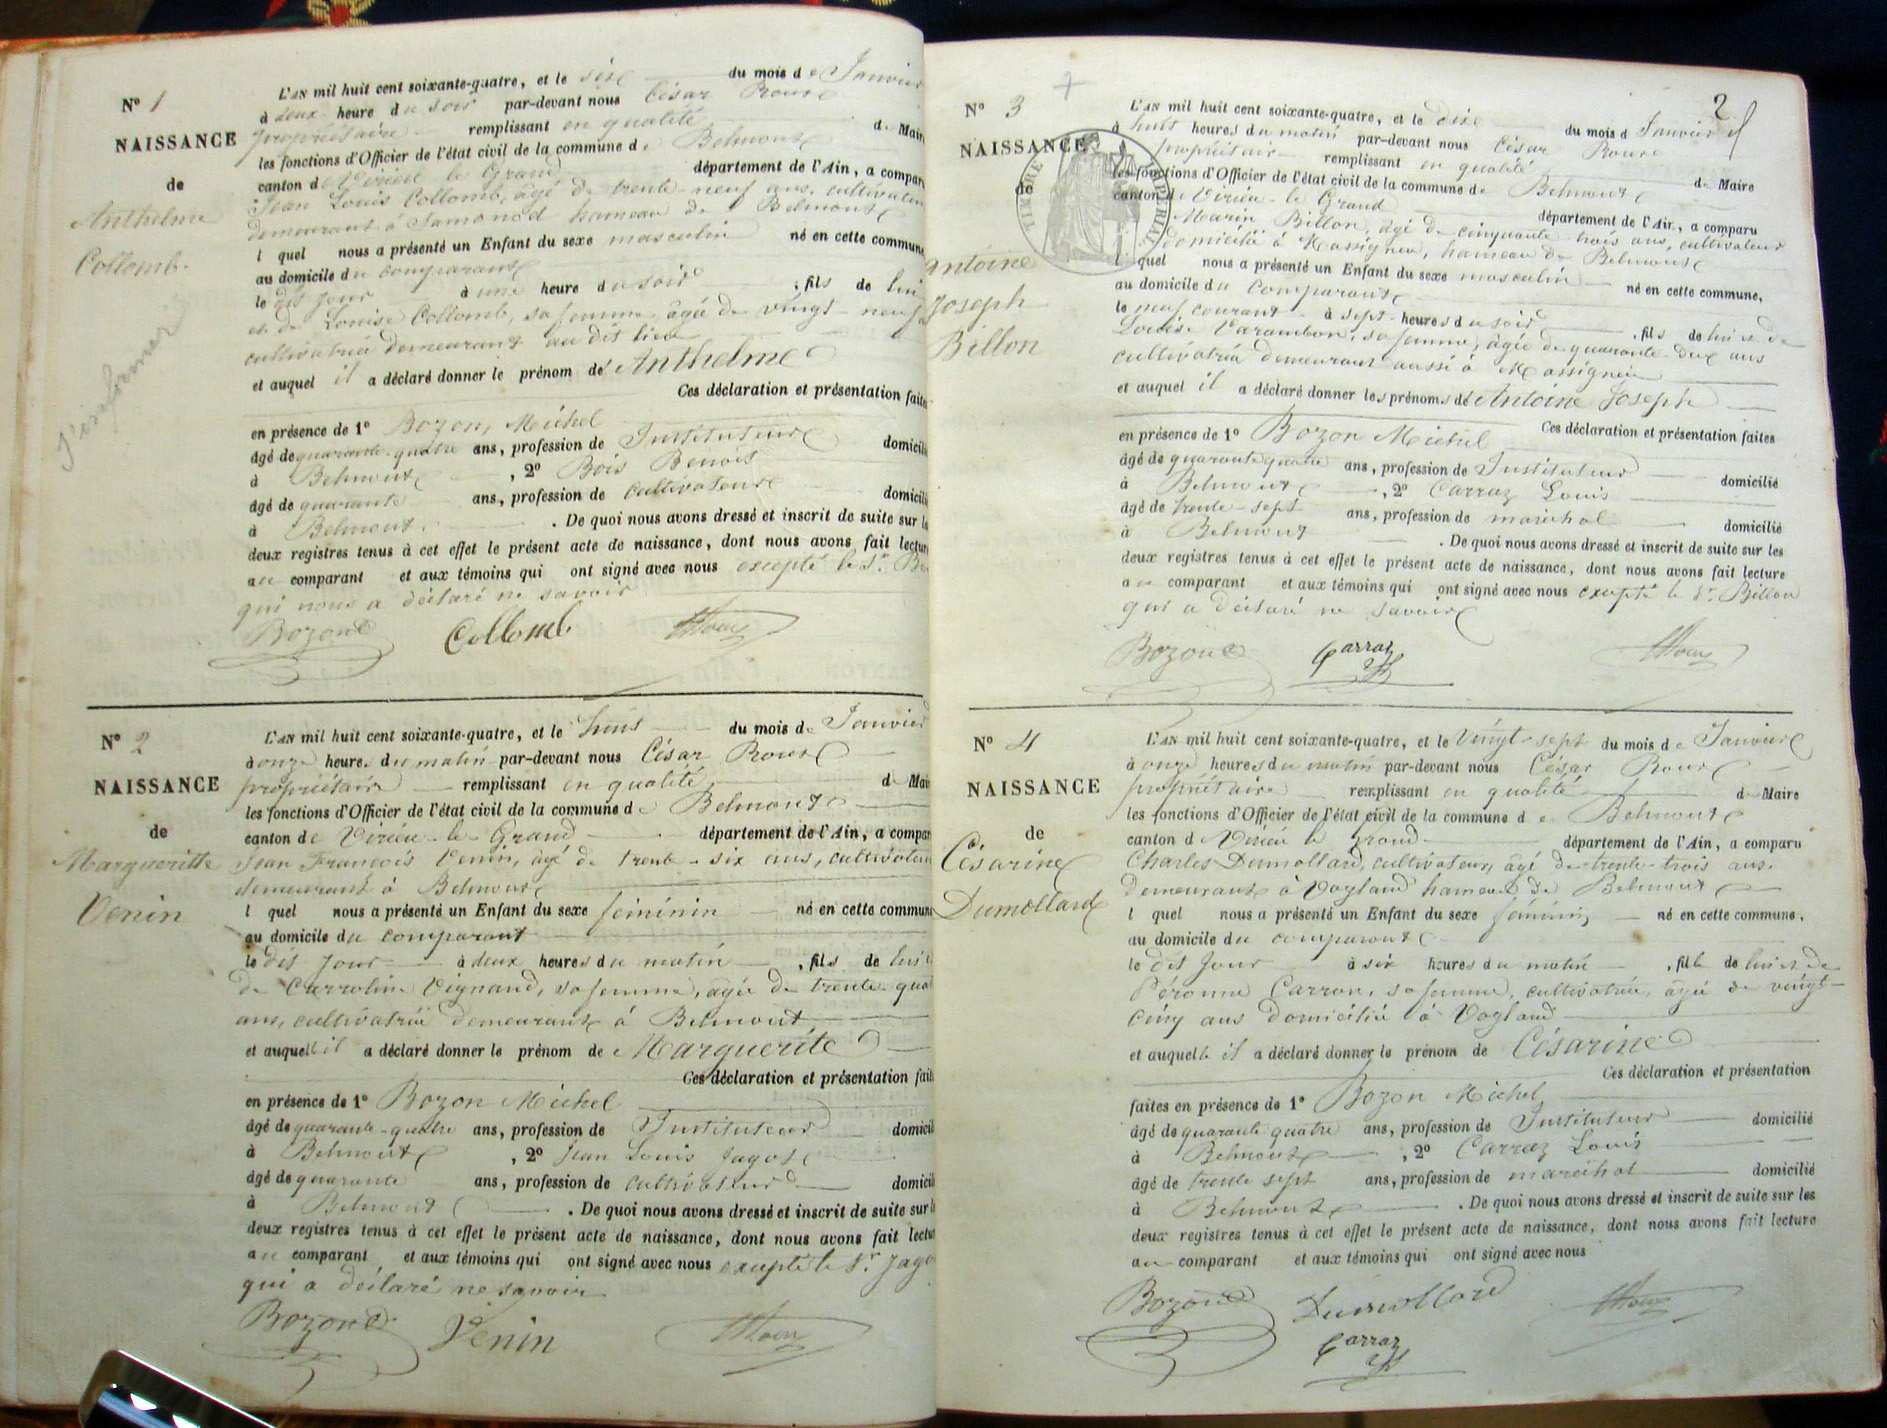 N° 1
NAISSANCE
de
Anthelme
Collomb.
L'AN mil huit cent soixante-quatre, et le six du mois de Janvier
à deux heure du soir par-devant nous César Roux
propriétaire remplissant en qualité de Maire
les fonctions d'Officier de l'état civil de la commune de Belmont
canton de Virieu le Grand département de l'Ain, a compar
Jean Louis Collomb, âgé de trente-neuf ans, cultivateur
demeurant à Samonod hameau de Belmont
l quel nous a présenté un Enfant du sexe masculin né en cette commune
au domicile du comparant
le dit jour à une heure du soir, fils de lui
et de Louise Collomb, sa femme âgée de vingt-neuf
cultivatrice demeurant au dit lieu
et auquel il a déclaré donner le prénom de Anthelme
Ces déclaration et présentation faites
en présence de 1° Bozon, Michel
âgé de quarante-quatre ans, profession de Instituteur domicilié
à Belmont, 2° Bois Benoît
âgé de quarante ans, profession de cultivateur domicilié
à Belmont. De quoi nous avons dressé et inscrit de suite sur le
deux registres tenus à cet effet le présent acte de naissance, dont nous avons fait lecture
au comparant et aux témoins qui ont signé avec nous excepté le Sr. B
qui nous a déclaré ne savoir
Bozon Collomb Roux
N° 2
NAISSANCE
de
Margueritte
Venin
L'AN mil huit cent soixante-quatre, et le huit du mois de Janvier
à onze heures du matin par-devant nous César Roux
propriétaire remplissant en qualité de Mai
les fonctions d'Officier de l'état civil de la commune de Belmont
canton de Virieu-le-Grand département de l'Ain, a compar
Jean François Venin, âgé de trente-six ans, cultivateur
demeurant à Belmont
l quel nous a présenté un Enfant du sexe féminin né en cette commune
au domicile du comparant
le dit jour à deux heures du matin, fils de lui e
de Carroline Vignand, sa femme, agée de trente-quat
ans, cultivatrice demeurant à Belmont
et auquelle il a déclaré donner le prénom de Marguerite
Ces déclaration et présentation fait
en présence de 1° Bozon Michel
âgé de quarante-quatre ans, profession de Instituteur domicil
à Belmont, 2° Jean Louis Jagot
âgé de quarante ans, profession de cultivateur domicil
à Belmont. De quoi nous avons dressé et inscrit de suite sur l
deux registres tenus à cet effet le présent acte de naissance, dont nous avons fait lectu
au comparant et aux témoins qui ont signé avec nous excepté le Sr. Jago
qui a déclaré ne savoir
Bozon Venin Roux
2
N° 3
NAISSANCE
de
Antoine
Joseph
Billon
TIMBRE IMPÉRIAL
L'AN mil huit cent soixante-quatre, et le dix du mois d Janvier
à huit heures du matin par-devant nous César Roux
propriétaire remplissant en qualité de Maire
les fonctions d'Officier de l'état civil de la commune de Belmont
canton de Virieu-le Grand département de l'Ain, a comparu
Marin Billon, agé de cinquante-trois ans, cultivateur
domicilié à Massignieu, hameau de Belmont
l quel nous a présenté un Enfant du sexe masculin né en cette commune,
au domicile du comparant
le neuf courant à sept heures du soir, fils de lui et de
Louise Varambon, sa femme, agée de quarante-deux ans
cultivatrice demeurant aussi à Massignieu
et auquel il a déclaré donner les prénoms de Antoine Joseph
Ces déclaration et présentation faites
en présence de 1° Bozon Michel
âgé de quarante quatre ans, profession de Instituteur domicilié
à Belmont, 2° Carraz Louis
âgé de trente-sept ans, profession de maréchal domicilié
à Belmont. De quoi nous avons dressé et inscrit de suite sur les
deux registres tenus à cet effet le présent acte de naissance, dont nous avons fait lecture
au comparant et aux témoins qui ont signé avec nous excepté le Sr. Billon
qui a déclaré ne savoir
Bozon Carraz Roux
N° 4
NAISSANCE
de
Césarine
Dumollard
L'AN mil huit cent soixante-quatre, et le Vingt-sept du mois de Janvier
à onze heures du matin par-devant nous César Roux
propriétaire remplissant en qualité de Maire
les fonctions d'Officier de l'état civil de la commune de Belmont
canton de Virieu le Grand département de l'Ain, a comparu
Charles Dumollard, cultivateur, âgé de trente-trois ans.
demeurant à Vogland hameau de Belmont
l quel nous a présenté un Enfant du sexe féminin né en cette commune,
au domicile du comparant
le dit jour à six heures du matin, fille de lui et de
Péronne Carron, sa femme, cultivatrice, agée de vingt-
cinq ans domiciliée à Vogland
et auquelle il a déclaré donner le prénom de Césarine
Ces déclaration et présentation
faites en présence de 1° Bozon Michel
âgé de quarante quatre ans, profession de Instituteur domicilié
à Belmont, 2° Carraz Louis
âgé de trente sept ans, profession de maréchal domicilié
à Belmont. De quoi nous avons dressé et inscrit de suite sur les
deux registres tenus à cet effet le présent acte de naissance, dont nous avons fait lecture
au comparant et aux témoins qui ont signé avec nous
Bozon Dumollard Roux
Carraz